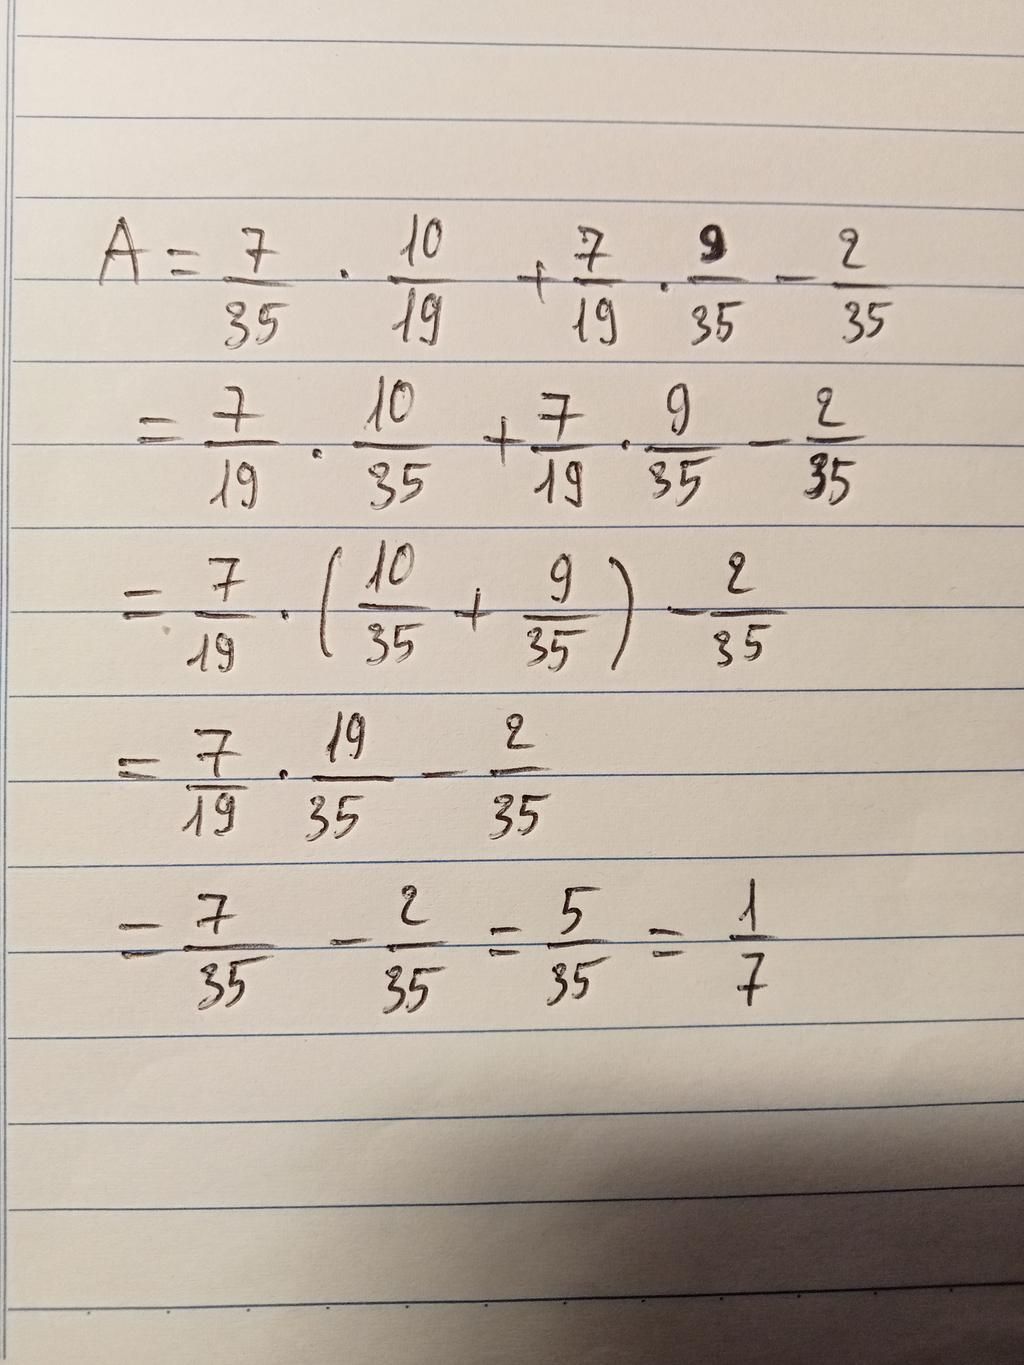 A = 7/35 · 10/19 + 7/19 · 9/35 - 2/35
= 7/19 · 10/35 + 7/19 · 9/35 - 2/35
= 7/19 · (10/35 + 9/35) - 2/35
= 7/19 · 19/35 - 2/35
= 7/35 - 2/35 = 5/35 = 1/7